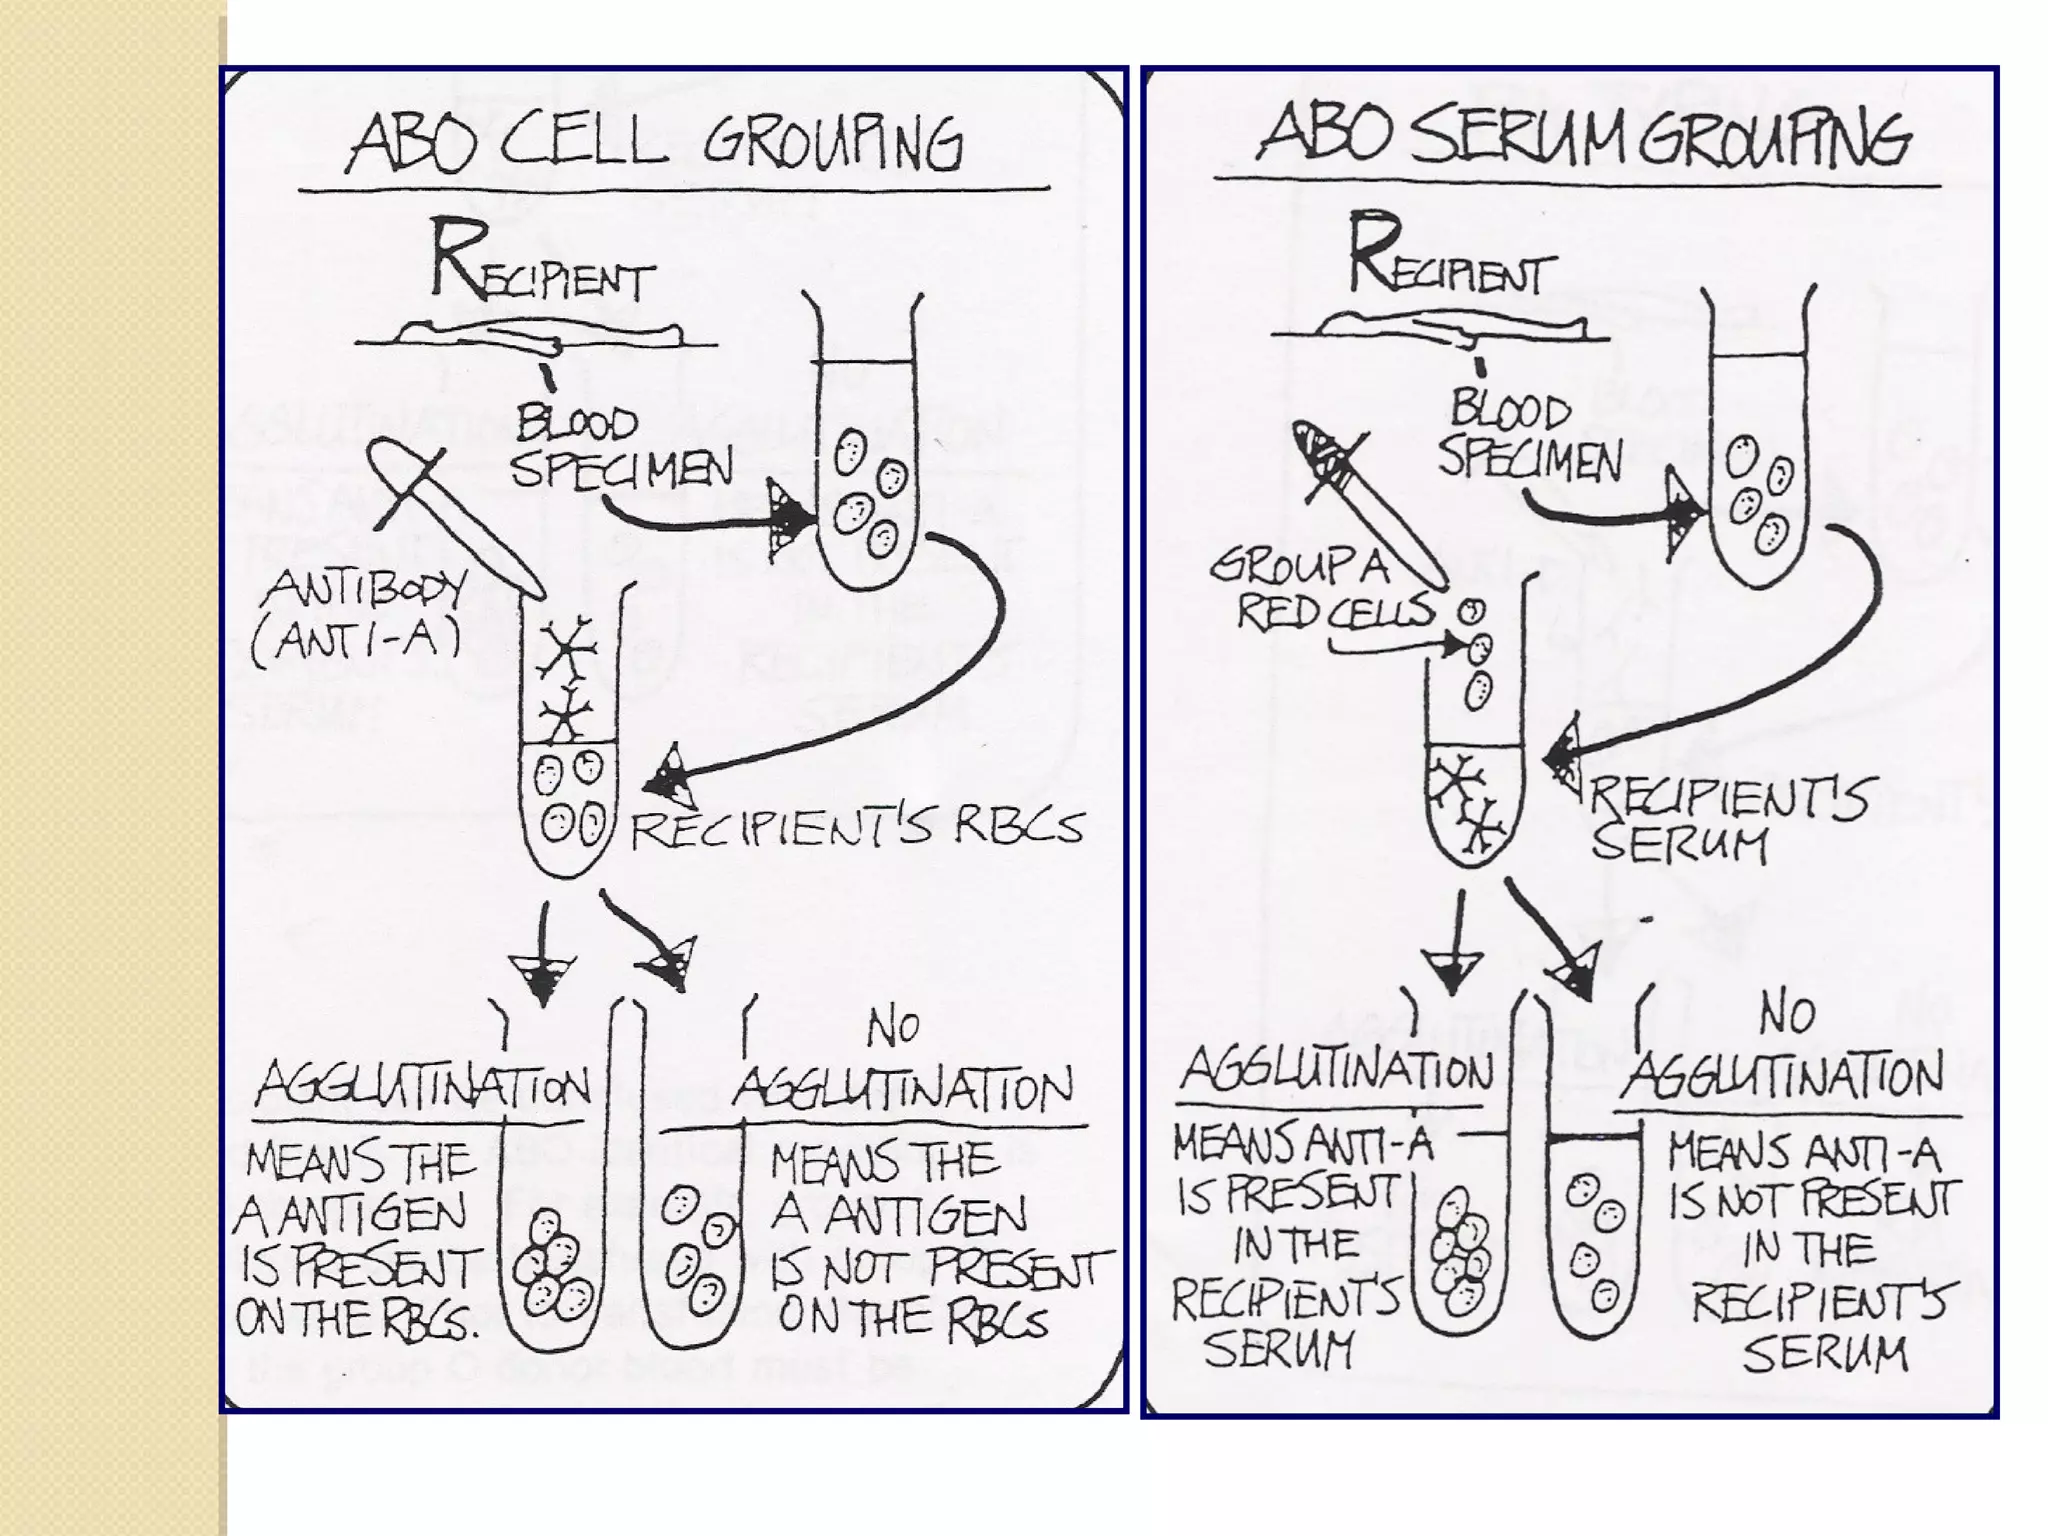 ABO CELL GROUPING
RECIPIENT
BLOOD
SPECIMEN
ANTIBODY
(ANTI-A)
RECIPIENT'S RBCS
AGGLUTINATION
MEANS THE
A ANTIGEN
IS PRESENT
ON THE RBCS.
NO
AGGLUTINATION
MEANS THE
A ANTIGEN
IS NOT PRESENT
ON THE RBCS
ABO SERUM GROUPING
RECIPIENT
BLOOD
SPECIMEN
GROUP A
RED CELLS
RECIPIENT'S
SERUM
AGGLUTINATION
MEANS ANTI-A
IS PRESENT
IN THE
RECIPIENT'S
SERUM
NO
AGGLUTINATION
MEANS ANTI-A
IS NOT PRESENT
IN THE
RECIPIENT'S
SERUM